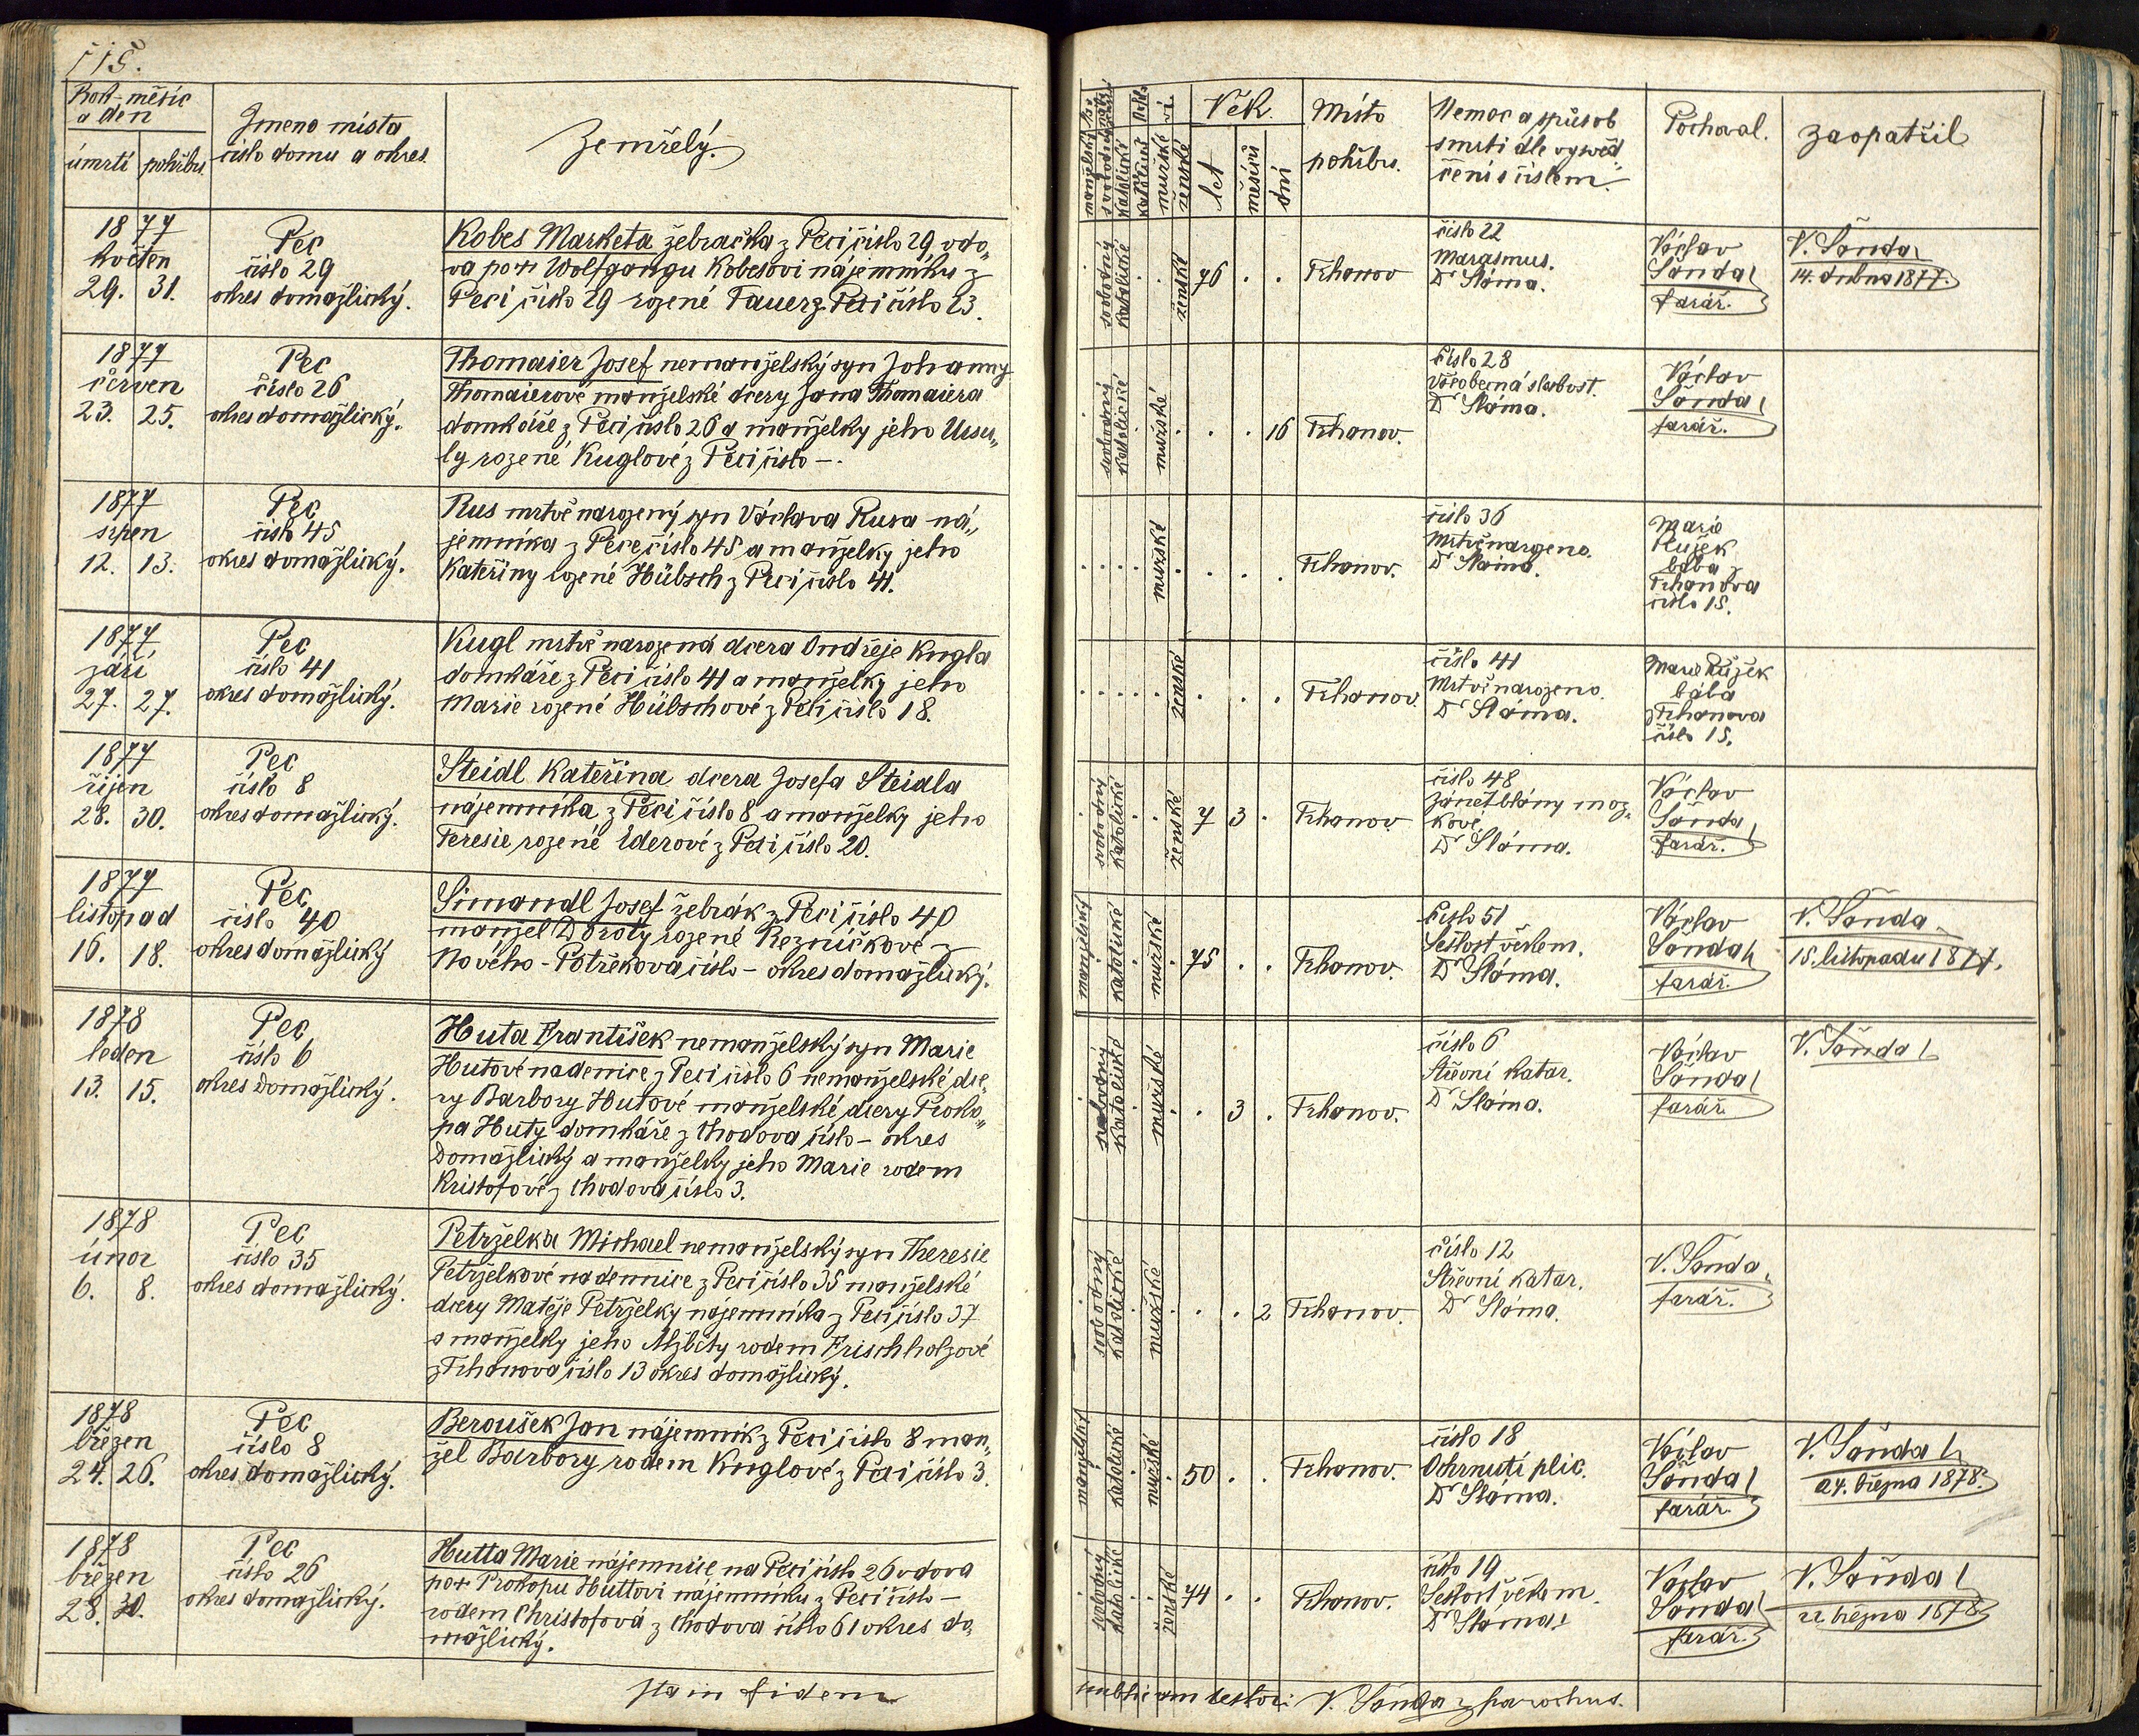 115.
Rok-měsíc
a den
úmrtí pohřbu
Jmeno místa
číslo domu a okres.
Zemřelý.
1877
květen
29. 31.
Pec
číslo 29
okres domažlický.
Kobes Marketa žebračka z Peci číslo 29 vdo„
va po + Wolfgangu Kobesovi nájemníku z
Peci číslo 29 rozené Tauer z Peci číslo 23.
1877
červen
23. 25.
Pec
číslo 26
okres domažlický.
Thomaier Josef nemanželský syn Johanny
Thomaierové manželské dcery Jana Thomaiera
domkáře z Peci číslo 26 a manželky jeho Ursu„
ly rozené Kuglové z Peci číslo -.
1877
srpen
12. 13.
Pec
číslo 45
okres domažlický.
Rus mrtvě narozený syn Václava Rusa ná„
jemníka z Pece číslo 45 a manželky jeho
Kateřiny rozené Hübsch z Peci číslo 41.
1877
září
27. 27.
Pec
číslo 41
okres domažlický.
Kugl mrtvě narozená dcera Ondřeje Kugla
domkáře z Peci číslo 41 a manželky jeho
Marie rozené Hübschové z Peci číslo 18.
1877
říjen
28. 30.
Pec
číslo 8
okres domažlický.
Steidl Kateřina dcera Josefa Steidla
nájemníka z Peci číslo 8 a manželky jeho
Teresie rozené Ederové z Peci číslo 20.
1877
listopad
16. 18.
Pec
číslo 40
okres domažlický
Simandl Josef žebrák z Peci číslo 40
manžel Doroty rozené Rezníčkové z
Nového-Postřekova číslo - okres domažlický.
1878
leden
13. 15.
Pec
číslo 6
okres Domažlický.
Huta František nemanželský syn Marie
Hutové nadenice z Peci číslo 6 nemanželské dce„
ry Barbory Hutové manželské dcery Proko„
pa Huty domkáře z Chodova číslo - okres
Domažlický a manželky jeho Marie rodem
Kristofové z Chodova číslo 3.
1878
únor
6. 8.
Pec
číslo 35
okres domažlický.
Petrželka Michael nemanželský syn Theresie
Petrželkové nadennice z Peci číslo 35 manželské
dcery Matěje Petrželky nájemníka z Peci číslo 37
a manželky jeho Alžběty rodem Frischholzové
z Trhanova číslo 13 okres domažlický.
1878
březen
24. 26.
Pec
číslo 8
okres domažlický.
Beroušek Jan nájemník z Peci číslo 8 man„
žel Barbory rodem Kuglové z Peci číslo 3.
1878
březen
28. 30.
Pec
číslo 26
okres domažlický.
Hutta Marie nájemnice na Peci číslo 26 vdova
po + Prokopu Huttovi nájemníku z Peci číslo -
rodem Christofova z Chodova číslo 61 okres do„
mažlický.
Sta in fidem
Věk.
let
měsíců
dní
mužské
ženské
Místo
pohřbu.
Nemoc a způsob
smrti dle vysvěd„
čení číslem.
Pochoval.
Zaopatřil
svobodný
katolické
ženské
76 . .
Trhanov
číslo 22
Marasmus.
Dr Sláma.
Václav
Šanda
farář.
V. Šanda
14. dubna 1877.
svobodný
katolické
mužské
. . 16
Trhanov.
číslo 28
všeobecná slabost.
Dr Sláma.
Václav
Šanda
farář.
mužské
Trhanov.
číslo 36
Mrtvě narozeno.
Dr Sláma.
Marie
Ružek
bába
Trhanova
číslo 15.
ženské
Trhanov.
číslo 41
Mrtvě narozeno.
Dr Sláma.
Marie Ružek
bába
z Trhanova
číslo 15.
svobodný
katolické
ženské
7 3 .
Trhanov.
číslo 48
zánět blány moz„
kové.
Dr Sláma.
Václav
Šanda
farář.
manželský
katolické
mužské
75 . .
Trhanov.
číslo 51
Sešlost věkem.
Dr Sláma.
Václav
Šanda
farář.
V. Šanda
15. listopadu 1877.
svobodný
katolické
mužské
. 3 .
Trhanov.
číslo 6
Střevní katar.
Dr Sláma.
Václav
Šanda
farář.
V. Šanda
svobodný
katolické
mužské
. . 2
Trhanov.
číslo 12
Střevní katar.
Dr Sláma.
V. Šanda
farář.
manželský
katolické
mužské
50 . .
Trhanov.
číslo 18
Ochrnutí plic.
Dr Sláma.
Václav
Šanda
farář.
V. Šanda
24. března 1878.
svobodný
katolické
ženské
74 . .
Trhanov.
číslo 19
Sešlost věkem.
Dr Sláma
Václav
Šanda
farář.
V. Šanda
22 března 1878
publicam testor: V. Šanda parochus.